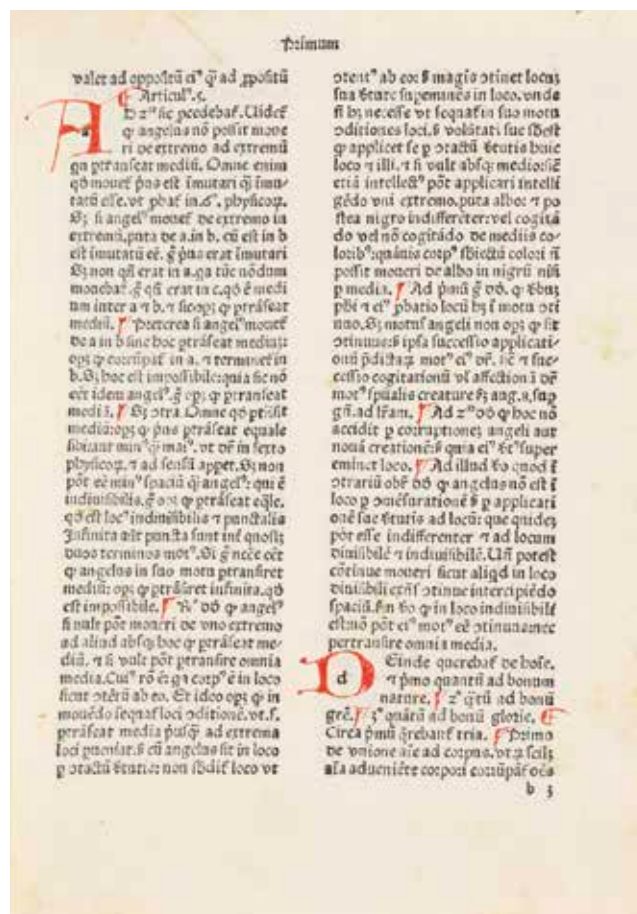 Primum
valet ad oppositū ei⁹ q̄ ad ꝓpositū
Articul⁹.5.
AD zᵐ sic ꝓcedebat̃. Uidet̃
ꝙ angelus nō possit moue
ri de extremo ad extremū
qn ꝑtranseat mediū. Omne enim
qd̄ mouet̃ pꝰus est imutari q̄ȝ imu-
tatū esse. vt phat̃ in.6°. physicoꝝ.
Sȝ si angel⁹ mouet̃ de extremo in
extremū. puta de.a.in b. cū est in b
est imutatū eē. g̊ pꝰus erat imutari
Sȝ non qn̄ erat in a. qa tūc nōdum
mouebat̃. g̊ qn̄ erat in c. qd̄ ē medi
um inter a ⁊ b. ⁊ sic opȝ ꝙ ꝑtrāseat
mediū. Preterea si angel⁹ mouet̃
de a in b sine hoc ꝙ ꝑtrāseat mediū:
opȝ ꝙ corrūpat̃ in a. ⁊ terminet̃ in
b. Sȝ hoc est impossibile: quia sic nō
eēt idem angel⁹. g̊ opȝ ꝙ ꝑtranseat
mediū. Sȝ ↄtra. Omne qd̄
mediū: opȝ ꝙ pꝰus ꝑtrāseat equale
sibi aut min⁹ q̄ȝ mai⁹. vt dr̄ in sexto
physicoꝝ. ⁊ ad sensū appet. Sȝ non
pōt eē min⁹ spaciū q̄ȝ angel⁹: qui ē
indiuisibilis. g̊ opȝ ꝙ ꝑtrāseat eq̄le.
qd̄ est loc⁹ indiuisibilis ⁊ punctalis
Infinita aūt puncta sunt int̃ quoslȝ
duos terminos mot⁹. Si g̊ necē eēt
ꝙ angelus in suo motu ꝑtransiret
mediū: opȝ ꝙ ꝑtrāsiret infinita. qd̄
est impossibile. Rꝰ. dd̄ ꝙ angel⁹
si vult pōt moueri de vno extremo
ad aliud absqȝ hoc ꝙ ꝑtrāseat me-
diū. ⁊ si vult pōt ꝑtransire omnia
media. Cui⁹ rō ē: qa corp⁹ ē in loco
sicut ↄtētū ab eo. Et ideo opȝ ꝙ in
mouēdo seqat̃ loci ↄditionē. vt .s.
ꝑtrāseat media pꝰusqȝ ad extrema
loci pueniat. sȝ cū angelus sit in loco
ꝑ ↄtactū v̄tutis: non sbdit̃ loco vt
ↄtent⁹ ab eo: sȝ magis ↄtinet locuȝ
sua v̄tute supeminēs in loco. vnde
nō hȝ necesse vt seqat̃ in suo motu
ↄditiones loci. sȝ volūtati sue sbest
ꝙ applicet se ꝑ ↄtactū v̄tutis huic
loco ⁊ illi. ⁊ si vult absqȝ medio: sic
etiā intellect⁹ pōt applicari intelli
gēdo vni extremo. puta albo: ⁊ po
stea nigro indifferēter: vel cogitā
do vel nō cogitādo de mediis co-
lorib⁹: quāuis corp⁹ sbiectū colori nō
possit moueri de albo in nigrū nisi
ꝑ media. Ad pꝰmū g̊ dd̄. ꝙ v̄buȝ
phi ⁊ ei⁹ ꝓbatio locū hȝ ī motu ↄti
nuo. Sȝ motus angeli non opȝ ꝙ sit
ↄtinuus: sȝ ipsa successio applicati-
onū ꝑdictaꝝ mot⁹ ei⁹ dr̄. sic ⁊ suc-
cessio cogitationū vl̄ affectionū dr̄
mot⁹ spūalis creature fȝ aug. 8. suꝑ
gn̄. ad lr̄am. Ad zᵐ dd̄ ꝙ hoc nō
accidit ꝑ corruptioneȝ angeli aut
nouā creationē: sȝ quia ei⁹ v̄t⁹ super
eminet loco. Ad illud v̄o quod ī
ↄtrariū obr̄ dd̄ ꝙ angelus nō est ī
loco ꝑ ↄmēsurationē sȝ ꝑ applicati
onē sue v̄tutis ad locū: que quideȝ
pōt esse indifferenter ⁊ ad locum
diuisibilē ⁊ indiuisibilē. Un̄ potest
cōtinue moueri sicut aliqd in loco
diuisibili exn̄s ↄtinue intercipiēdo
spaciū. sȝm v̄o ꝙ in loco indiuisibili
est nō pōt ei⁹ mot⁹ eē ↄtinuus nec
pertransire omnia media.
DEinde querebat̃ de hoīe.
⁊ pꝰmo quantū ad bonum
nature. z° q̄tū ad bonū
gr̄e. 3° quātū ad bonū glorie.
Circa pꝰmū q̄rebant̃ tria. Primo
de vnione aīe ad corpus. vtꝝ scilȝ
aīa adueniēte corpori corrūpāt̃ oēs
b 3